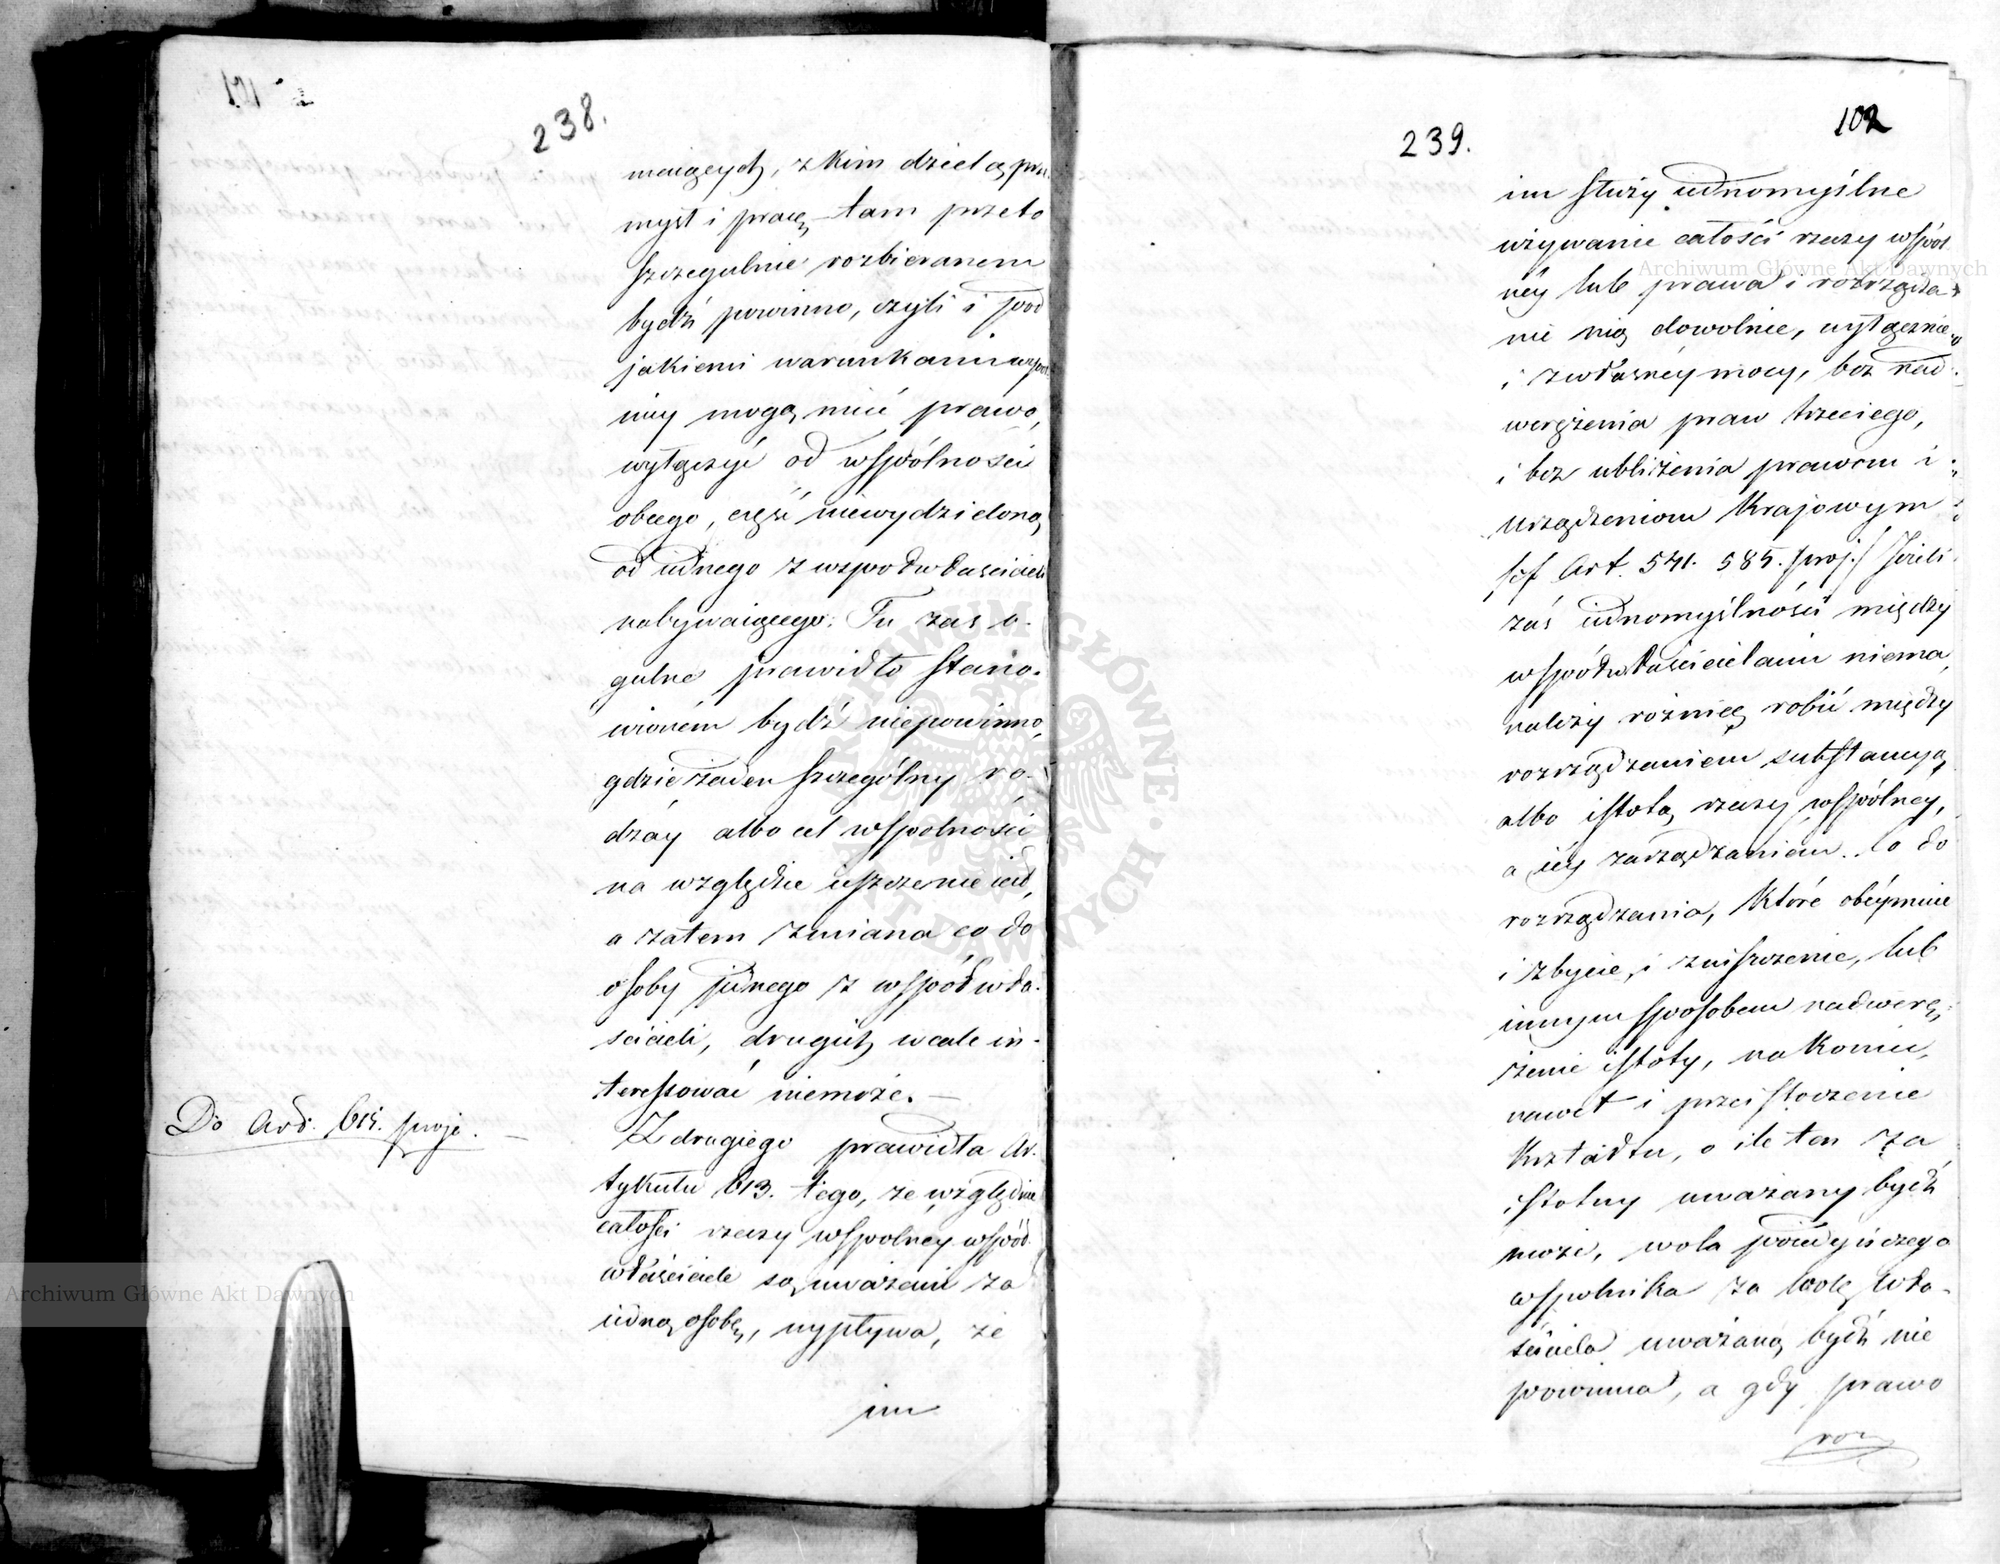 238.
maiących, z kim dzielą prze
mysł i pracę, tam przeto
szczegulnie rozbieranem
bydź powinno, czyli i pod
jakiemi warunkami wspól
nicy mogą mieć prawo,
wyłączyć od wspólności
obcego, część niewydzieloną
od iednego z wspołwłaścicieli
nabywaiącego. Tu zaś o-
gulne prawidło stano-
wioném bydź niepowinno,
gdzie żaden szczególny ro-
dzay albo cel wspolności
na względzie ieszcze nie iest,
a zatem zmiana co do
osoby jednego z wspóŁwła-
ścicieli, drugich wcale in-
teressować niemoże. —
Do Art. 615. proje. —
Z drugiego prawidła Ar-
tykułu 613. tego, że względem
całości rzeczy wspolney wspód
właściciele są uważani za
iedną osobę, wypływa, że
im
102
239.
im służy iednomyślne
używanie całości rzeczy wspól
néy lub prawa i rozrządza-
nie nią dowolnie, wyłącznie
i z własnéy mocy, bez nad-
werężenia praw trzeciego,
i bez ubliżenia prawom i
urządzeniom Krajowym
/cf Art. 541. 585. proj./ Jeżeli
zaś iednomyślności między
wspóŁwłaścicielami niema,
należy rożnicę robić między
rozrządzaniem substancyą
albo istotą rzeczy wspólney,
a iéy zarządzaniem. Co do
rozrządzania, Które obéymuie
i zbycie, i zniszczenie, lub
innym sposobem nadwerę-
żenie istoty, nakoniec,
nawet i przeistoczenie
Kształtu, o ile ten za
istotny uważany bydź
może, wola poiedyńczego
wspolnika za wolę wła-
ściciela uważaną bydź nie
powinna, a gdy prawo
roz
Archiwum Główne Akt Dawnych
Archiwum Główne Akt Dawnych
ARCHIWUM GŁÓWNE AKT DAWNYCH